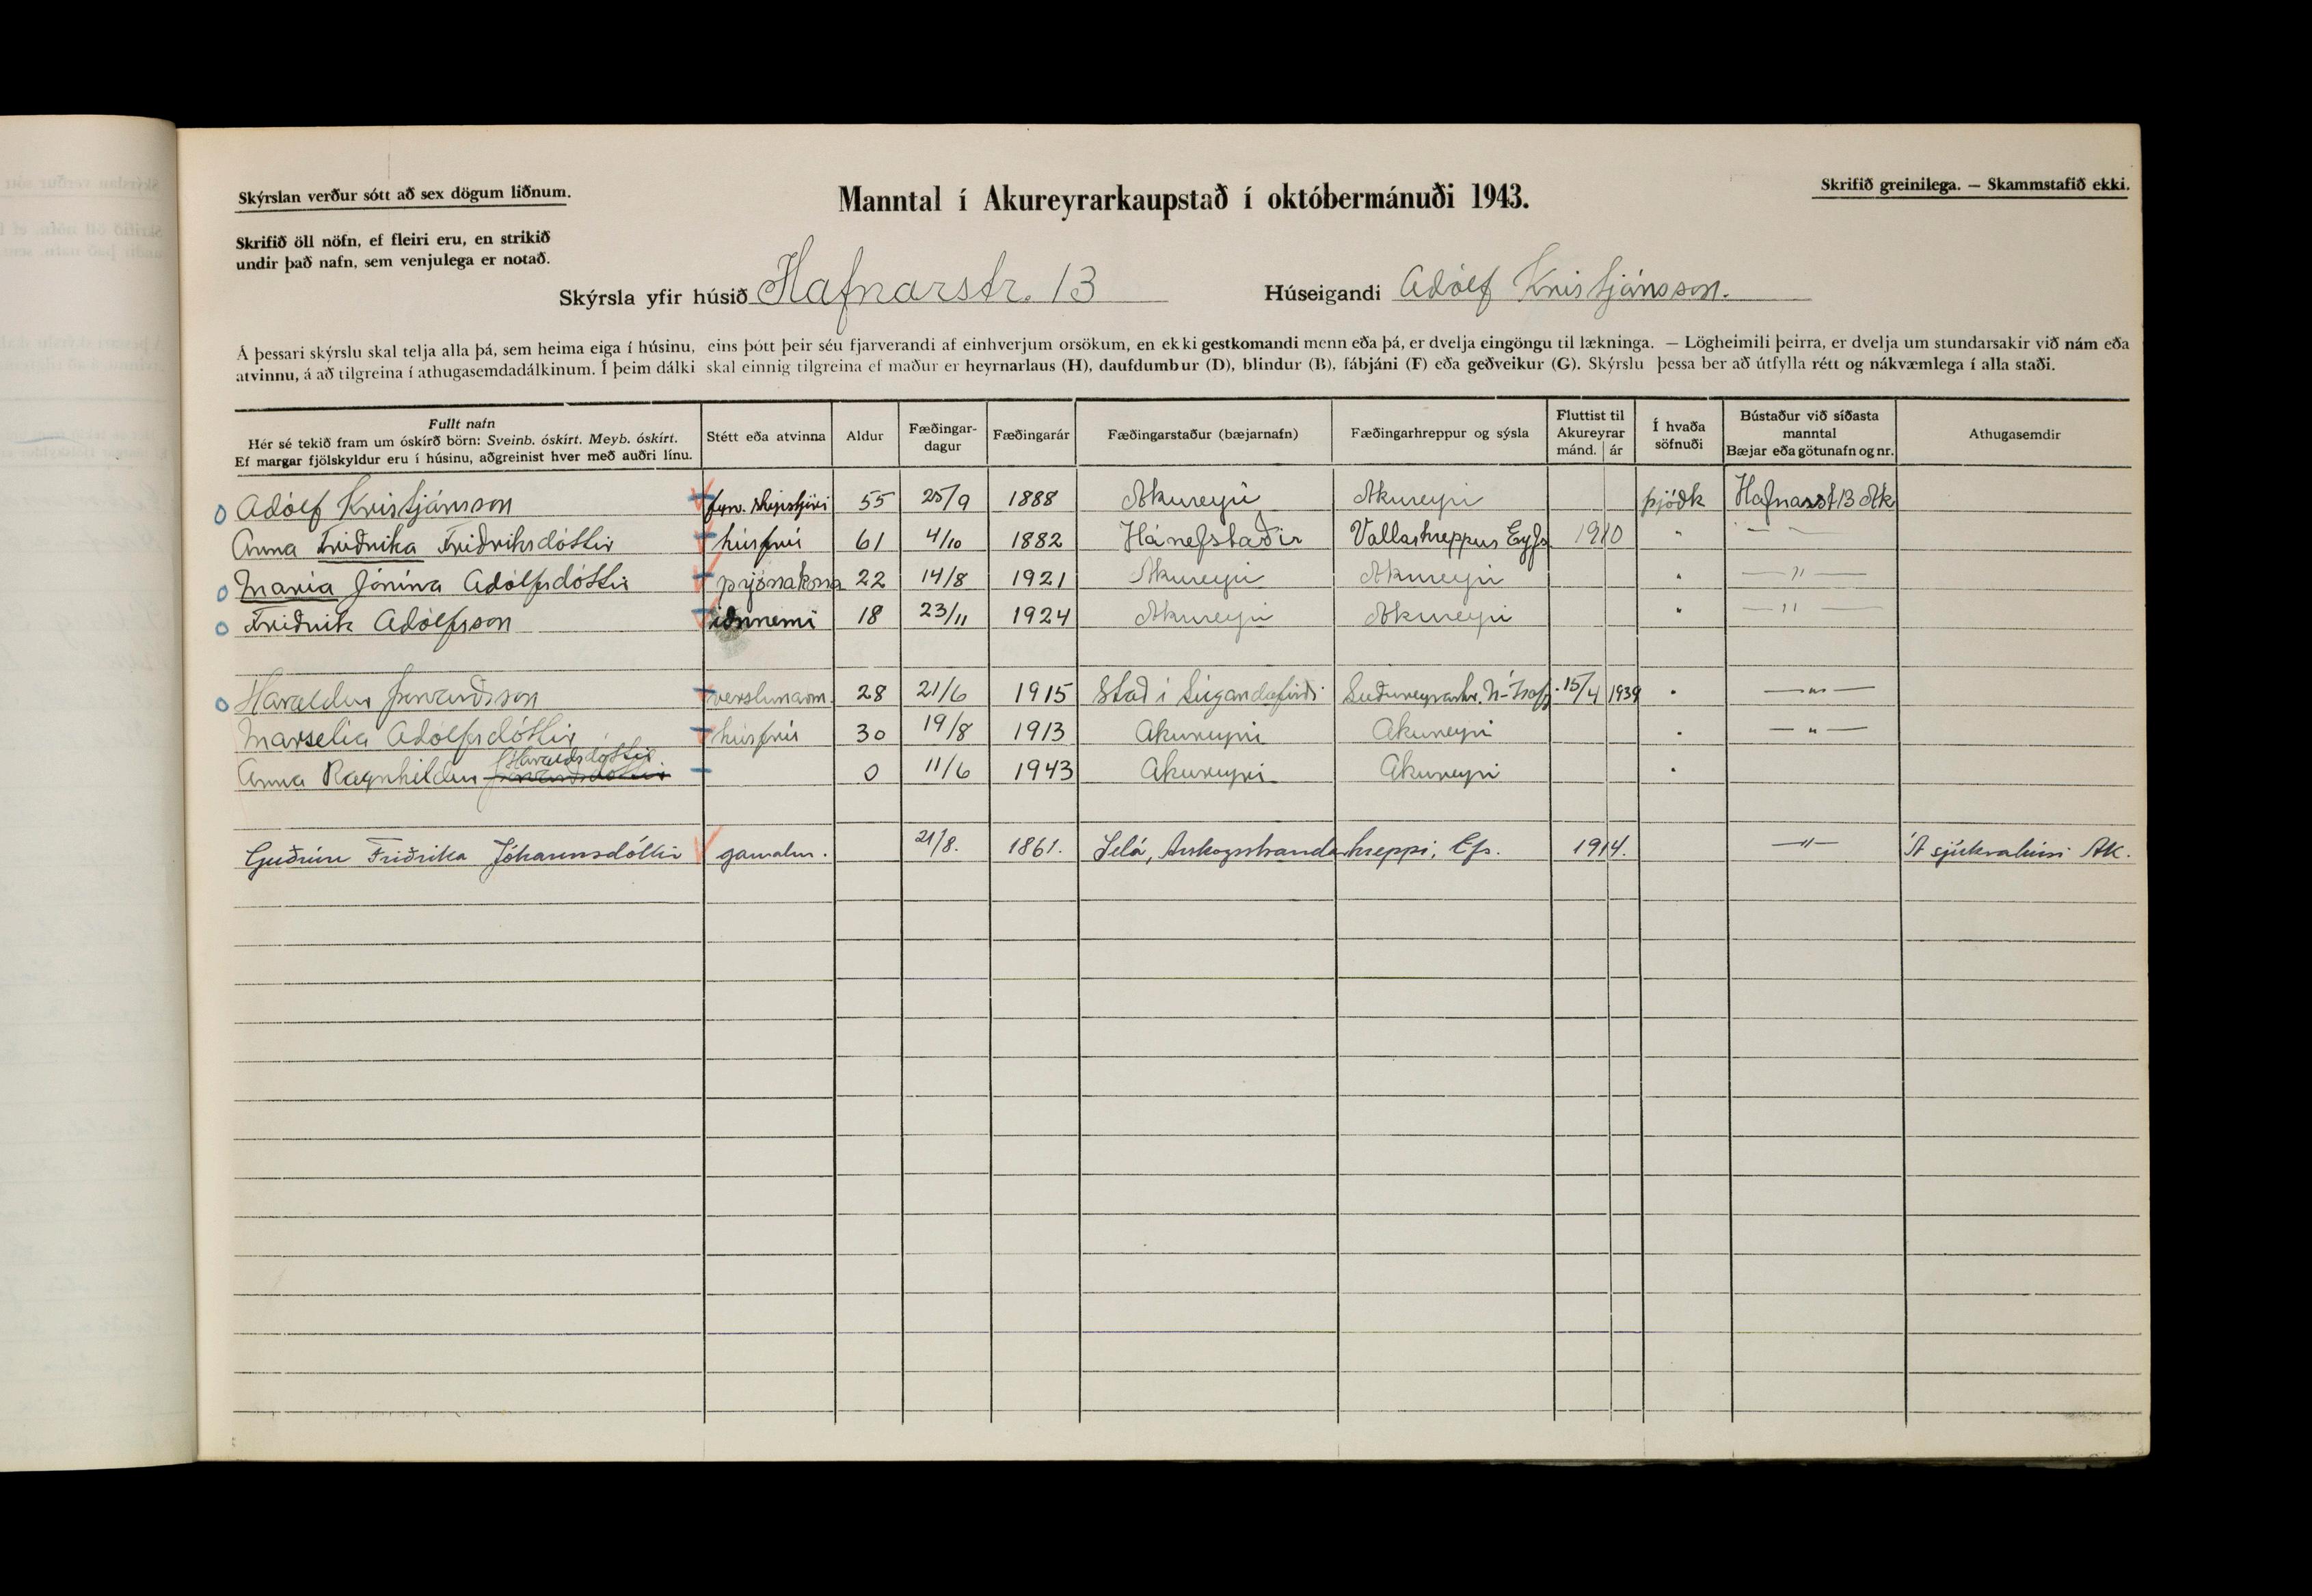 Skýrslan verður sótt að sex dögum liðnum.
Manntal í Akureyrarkaupstað í októbermánuði 1943.
Skrifið greinilega. — Skammstafið ekki.
Skrifið öll nöfn, ef fleiri eru, en strikið
undir það nafn, sem venjulega er notað.
Skýrsla yfir húsið Hafnarstr. 13 Húseigandi Adólf Kristjánsson.
Á þessari skýrslu skal telja alla þá, sem heima eiga í húsinu, eins þótt þeir séu fjarverandi af einhverjum orsökum, en ekki gestkomandi menn eða þá, er dvelja eingöngu til lækninga. — Lögheimili þeirra, er dvelja um stundarsakir við nám eða
atvinnu, á að tilgreina í athugasemdadálkinum. Í þeim dálki skal einnig tilgreina ef maður er heyrnarlaus (H), daufdumbur (D), blindur (B), fábjáni (F) eða geðveikur (G). Skýrslu þessa ber að útfylla rétt og nákvæmlega í alla staði.
Fullt nafn
Hér sé tekið fram um óskírð börn: Sveinb. óskírt. Meyb. óskírt.
Ef margar fjölskyldur eru í húsinu, aðgreinist hver með auðri línu.
Stétt eða atvinna
Aldur
Fæðingar-
dagur
Fæðingarár
Fæðingarstaður (bæjarnafn)
Fæðingarhreppur og sýsla
Fluttist til
Akureyrar
mánd. ár
Í hvaða
söfnuði
Bústaður við síðasta
manntal
Bæjar eða götunafn og nr.
Athugasemdir
Adólf Kristjánsson fyrv. skipstjóri 55 25/9 1888 Akureyri Akureyri þjóðk Hafnarst 13 Ak
Anna Friðrika Friðriksdóttir húsfrú 61 4/10 1882 Hánefstaðir Vallarhreppur Eyf. 1910 " "
María Jónína Adólfsdóttir prjónakona 22 14/8 1921 Akureyri Akureyri " — " —
Friðrik Adólfsson iðnnemi 18 23/11 1924 Akureyri Akureyri " — " —
Haraldur verslunarm. 28 21/6 1915 Stað í Súgandafirði Suðureyrarhr. N-Ísafj. 15/4 1939 " — " —
Marselía Adólfsdóttir húsfrú 30 19/8 1913 Akureyri Akureyri " — " —
Haraldsdóttir
Anna Ragnhildur 0 11/6 1943 Akureyri Akureyri "
Guðrún Friðrika Jóhannsdóttir gamalm. 21/8. 1861. Selá, Árskógsstrandahreppi, Ef. 1914. — " — Á sjúkrahúsi AK.